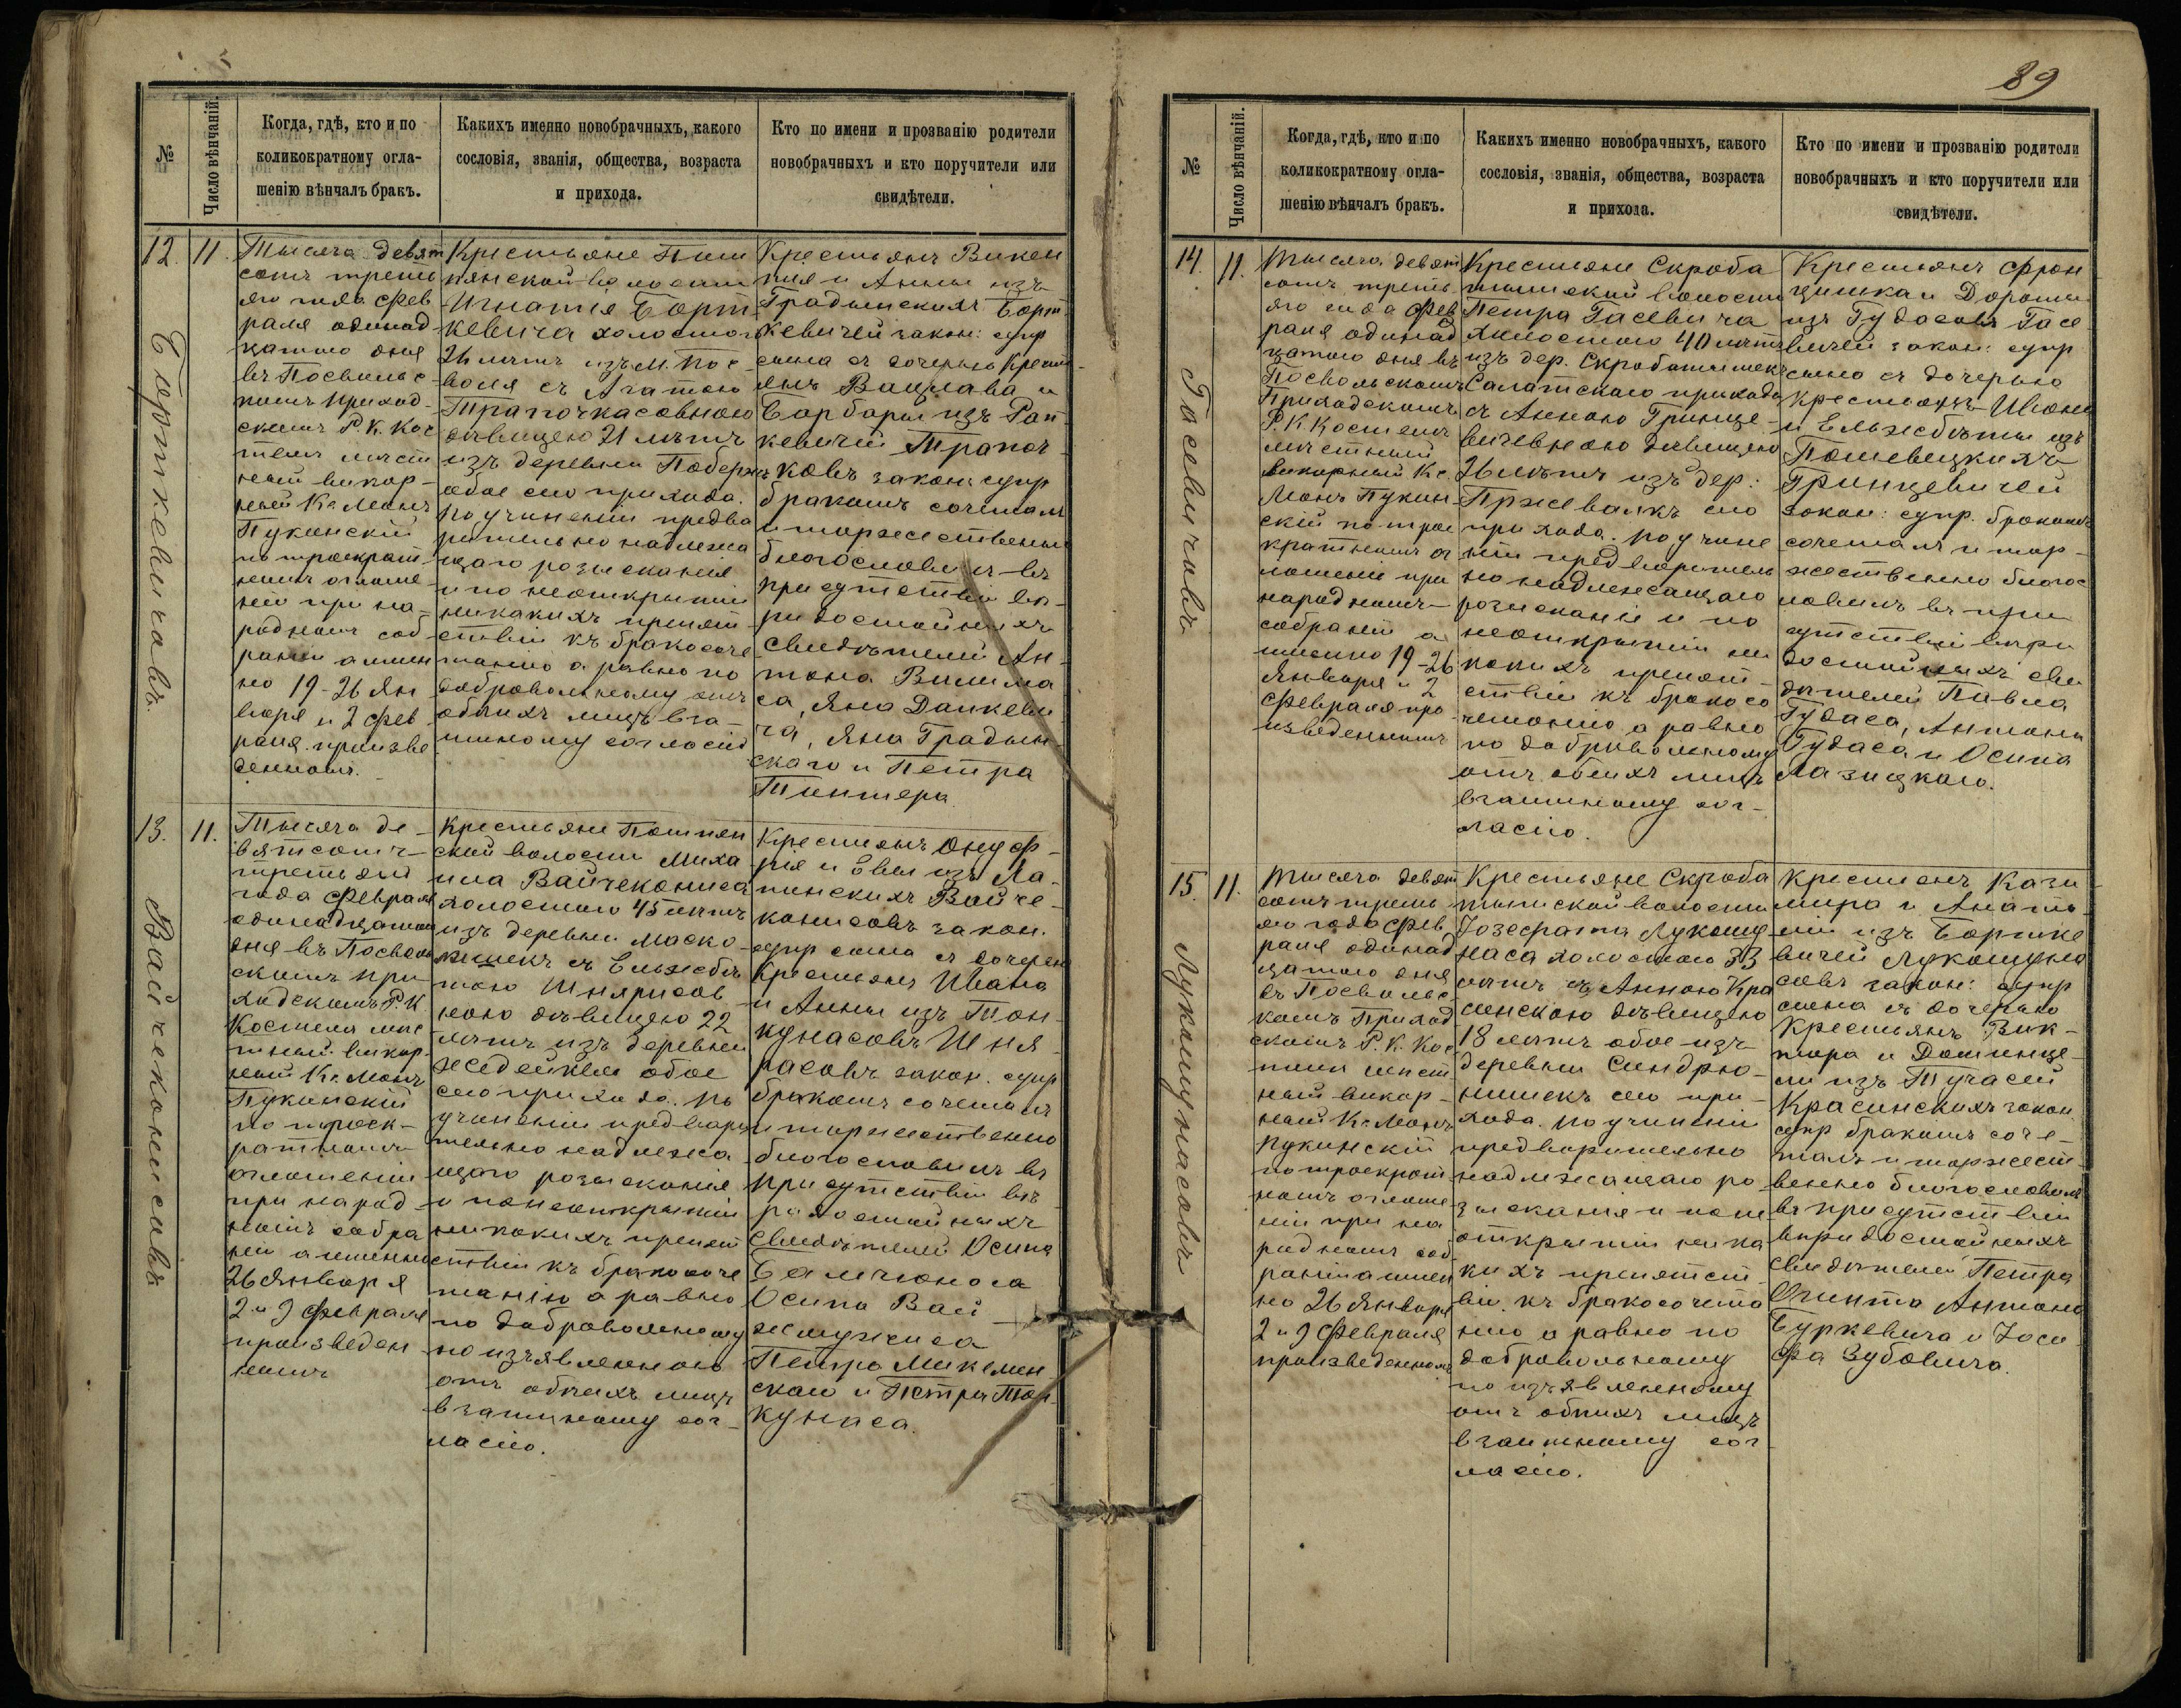 89
№
Число вѣнчаній.
Когда, гдѣ, кто и по
коликократному огла-
шенію вѣнчалъ бракъ.
Какихъ именно новобрачныхъ, какого
сословія, званія, общества, возраста
и прихода.
Кто по имени и прозванію родители
новобрачныхъ и кто поручители или
свидѣтели.
12.
11.
Борткевичовъ.
Тысяча девят
сотъ треть
яго года Фев
раля одинад
цатаго дня
въ Посвольс-
комъ приход-
скомъ Р. К. Кос
телѣ мѣст
ный викар-
ный Кс Монъ
Пукинскій
по троекрат
номъ оглаше-
ніи при на-
родномъ соб-
раніи а имен
но 19-26 Ян
варя и 2 Фев
раля произве
денномъ.
Крестьяне
нянской волости
Игнатія Борт
кевича холостого
26 лѣтъ изъ м. Пос-
воля съ Агатою
Трапочкасовною
дѣвицею 21 лѣтъ
изъ деревни
обое сего прихода.
По учиненіи предва
рительно надлежа
щаго розысканія
и по неоткрытіи
никакихъ препят
ствій къ бракосоче
танію а равно по
добровольному отъ
обоихъ лицъ вза-
имному согласію
Крестьянъ Викен
тія и Анны изъ
Градынскихъ Борт
кевичей закон: супр
сына съ дочерью Крест
янъ Вацлава и
Барбары изъ Ран
кевичей Трапоч
ковъ закон: супр
бракомъ сочеталъ
и торжественно
благословилъ въ
присутствіи вѣ-
ридостойныхъ
Свидѣтелей Ан
тона Вилима
са, Яна Данкеви
ча, Яна Градын
скаго и Петра
Тинтера.
13.
11.
Вайчеконисовъ
Тысяча де-
вятсотъ
третьяго
года Февраля
одинадцатаго
дня въ Посволь
скомъ при
ходскомъ Р. К.
Костелѣ мѣс
тный викар
ный Кс Монъ
Пукинскій
по троек-
ратномъ
оглашеніи
при народ-
номъ собра
ніи а именно
26 Января
2 и 9 Февраля
произведен
номъ
Крестьяне Помпян
ской волости Миха
ила Вайчекониса
холостого 45 лѣтъ
изъ деревни Маско-
нишекъ съ Ельжбѣ
тою Шнярисов
ною дѣвицею 22
лѣтъ изъ деревни
обое
сего прихода. По
учиненіи предвари
тельно надлежа
щаго розысканія
и по неоткрытіи
никакихъ препят
ствій къ бракосоче
танію а равно
по добровольному
по изъявленному
отъ обоихъ лицъ
взаимному сог-
ласію.
Крестьянъ Онуф-
рія и Евы изъ Ла-
пинскихъ Вайче-
конисовъ закон.
супр сына съ дочерью
Крестьянъ Ивана
и Анны изъ Тон-
кунасовъ Шня
расовъ закон. супр
бракомъ сочеталъ
и торжественно
благословилъ въ
присутствіи вѣ
ридостойныхъ
Свидѣтелей Осипа
Бальчюноса
Осипа Вай
Петра Микелен
скаго и Петра Тон
кунаса.
№
Число вѣнчаній.
Когда, гдѣ, кто и по
коликократному огла-
шенію вѣнчалъ бракъ.
Какихъ именно новобрачныхъ, какого
сословія, званія, общества, возраста
и прихода.
Кто по имени и прозванію родители
новобрачныхъ и кто поручители или
свидѣтели.
14.
11.
Гасевичовъ
Тысяча девят
сотъ треть
яго года Фев
раля одинад
цатаго дня въ
Посвольскомъ
Приходскомъ
Р. К Костелѣ
мѣстный
викарный Кс.
Монъ Пукин
скій по трое
кратномъ ог
лашеніи при
народномъ
собраніи а
именно 19-26
Января и 2
Февраля про
изведенномъ
Крестьяне Скроба
тышской волости
Петра Гасевича
холостого 40 лѣтъ
изъ дер. Скробатышек
Салатскаго прихода
съ Анною Гринце-
вичевною дѣвицею
26 лѣтъ изъ дер:
Пржевалкъ сего
прихода. По учине
ніи предварительн
но надлежащаго
розысканія и по
неоткрытіи ни
какихъ препят-
ствій къ бракосо
четанію а равно
по добровольному
отъ обоихъ лицъ
взаимному сог-
ласію.
Крестьянъ Фран
цишка и Дороты
изъ Гудасовъ Гасе
вичей закон: супр
сына съ дочерью
Крестьянъ Ивана
и Ельжбѣты изъ
Пошевецкихъ
Гринцевичей
закон: супр. бракомъ
сочеталъ и тор-
жественно благос
ловилъ въ при
сутствіи вѣри
достойныхъ сви
дѣтелей Павла
Гудаса, Антона
Гудаса и Осипа
Лазицкаго.
15.
11.
Лукошунасовъ
Тысяча девят
сотъ треть
яго года Фев
раля одинад
цатаго дня
въ Посвольс-
комъ Приход
скомъ Р. К. Кос
телѣ мѣст
ный викар-
ный Кс Монъ
Пукинскій
по троекрат
номъ оглаше
ніи при на
родномъ соб-
раніи а имен
но 26 Января
2 и 9 Февраля
произведенномъ
Крестьяне Скроба
тышской волости
Іозефата Лукошу
наса холостого 33
лѣтъ съ Анною Кра
синскою дѣвицею
18 лѣтъ обое изъ
деревни Синдрю-
нишекъ сего при-
хода. По учиненіи
предварительно
надлежащаго ро-
зысканія и по не
открытіи ника
кихъ препятст
вій къ бракосочета
нію а равно по
добровольному
по изъявленному
отъ обоихъ лицъ
взаимному сог
ласію.
Крестьянъ Кази
мира и Анато-
ліи изъ Бортке
вичей Лукошуна
совъ закон: супр
сына съ дочерью
Крестьянъ Вик-
тора и Доминце-
ли изъ Тучасей
Красинскихъ закон
супр бракомъ соче-
талъ и торжест
венно благословилъ
въ присутствіи
вѣридостойныхъ
свидѣтелей Петра
Огинта Антона
Буркевича и Іоси
фа Зубовича.